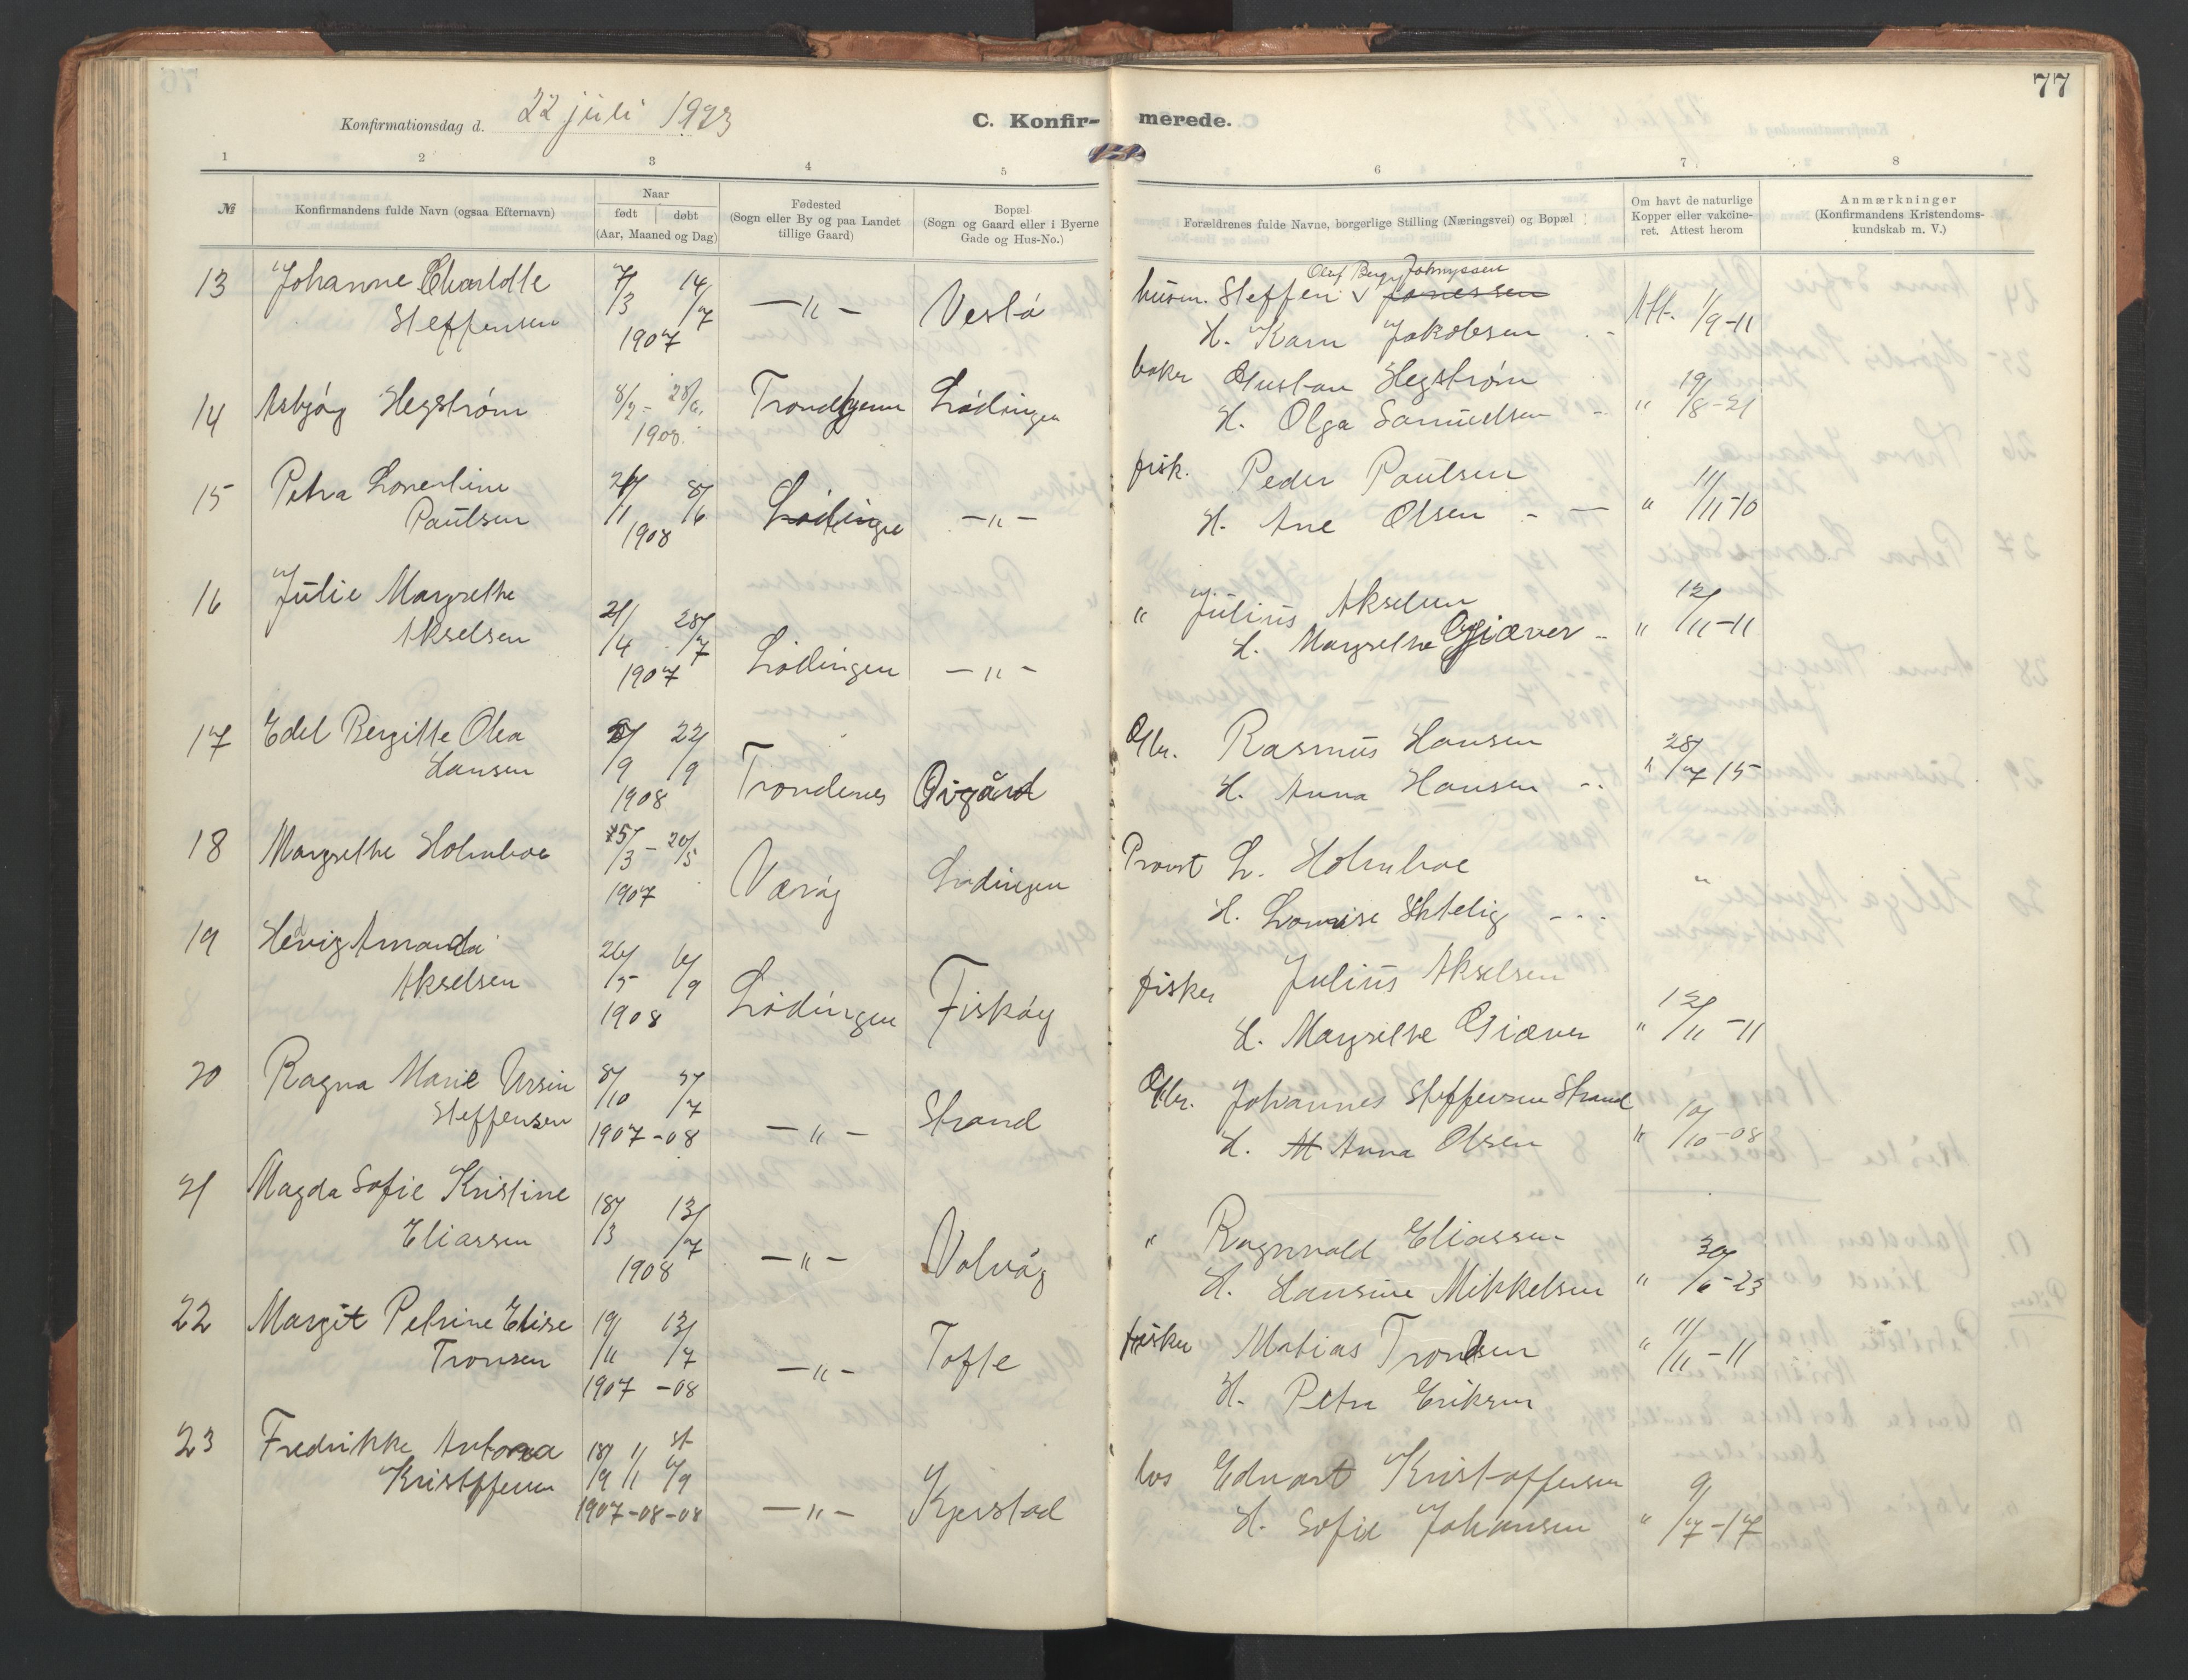 77
Konfirmationsdag d. 22 juli 1923
C. Konfir- merede.
1 2 3 4 5 6 7 8
№
Konfirmandens fulde Navn (ogsaa Efternavn)
Naar
født døbt
(Aar, Maaned og Dag)
Fødested
(Sogn eller By og paa Landet
tillige Gaard)
Bopæl
(Sogn og Gaard eller i Byerne
Gade og Hus-No.)
Forældrenes fulde Navne, borgerlige Stilling (Næringsvei) og Bopæl
Om havt de naturlige
Kopper eller vakcine-
ret. Attest herom
Anmærkninger
(Konfirmandens Kristendoms-
kundskab m. V.)
13 Johanne Charlotte 7/3 14/7 —"— Vestå husm. Steffen Olaf Berg Johnyssen Att. 1/9-11
Steffensen 1907 H. Karn Jakobsen
14 Asbjóng Hegstrøm 8/2- 28/6. Trondhjem Lødingen baker Gustav Hegstrøm
1908. H. Olga Samuelsen " 19/8-21
15 Petra Lovertine 8/6 Lødingen —"— fisk. Peder Paulsen
Paulsen 1908 H. Ane Olsen " 11/11-10
16 Julie Margrethe " Julius Akselsen
Akselsen 21/4 28/7 Lødingen —"— H. Margrethe Giæver " 12/11-11
1907
17 Edel Bergitte Olea 22/9 Trondenes Øvgård Gbr. Rasmus Hansen
Hansen 1908 H. Anna Hansen " 28/7 15
18 Margrethe Holmboe 25/3 - 20/5 Værøy Lødingen Provst L. Holmboe "
1907 H. Lovise Shtelig
19 Hedvig Amanda fisker Julius Akselsen
Akselsen 26/5 6/9 Lødingen Fiskøy H. Margrethe Giæver " 12/11-11
1908
20 Ragna Marie Ursin 8/10 5/7 —"— Strand Gbr. Johannes Steffensen Strand
Steffensen 1907-08 H. Anna Olsen " 10/10-08
21 Magda Sofie Kristine 18/3 13/7 —"— Valvåg " Ragnvald Eliassen
Eliassen 1908 H. Hansine Mikkelsen " 30/6-23
22 Margit Petrine Elise 19/11 13/7 —"— Tofte fisker Matias Trondsen " 11/11-11
Tronsen 1907-08 H. Petra Eriksen
23 Fredrikke Antona 18/9 1/1 st. 6/9 —"— Kjerstad los Edvart Kristoffersen
Kristoffersen 1907-08-08 H. Sofie Johansen " 9/7-17